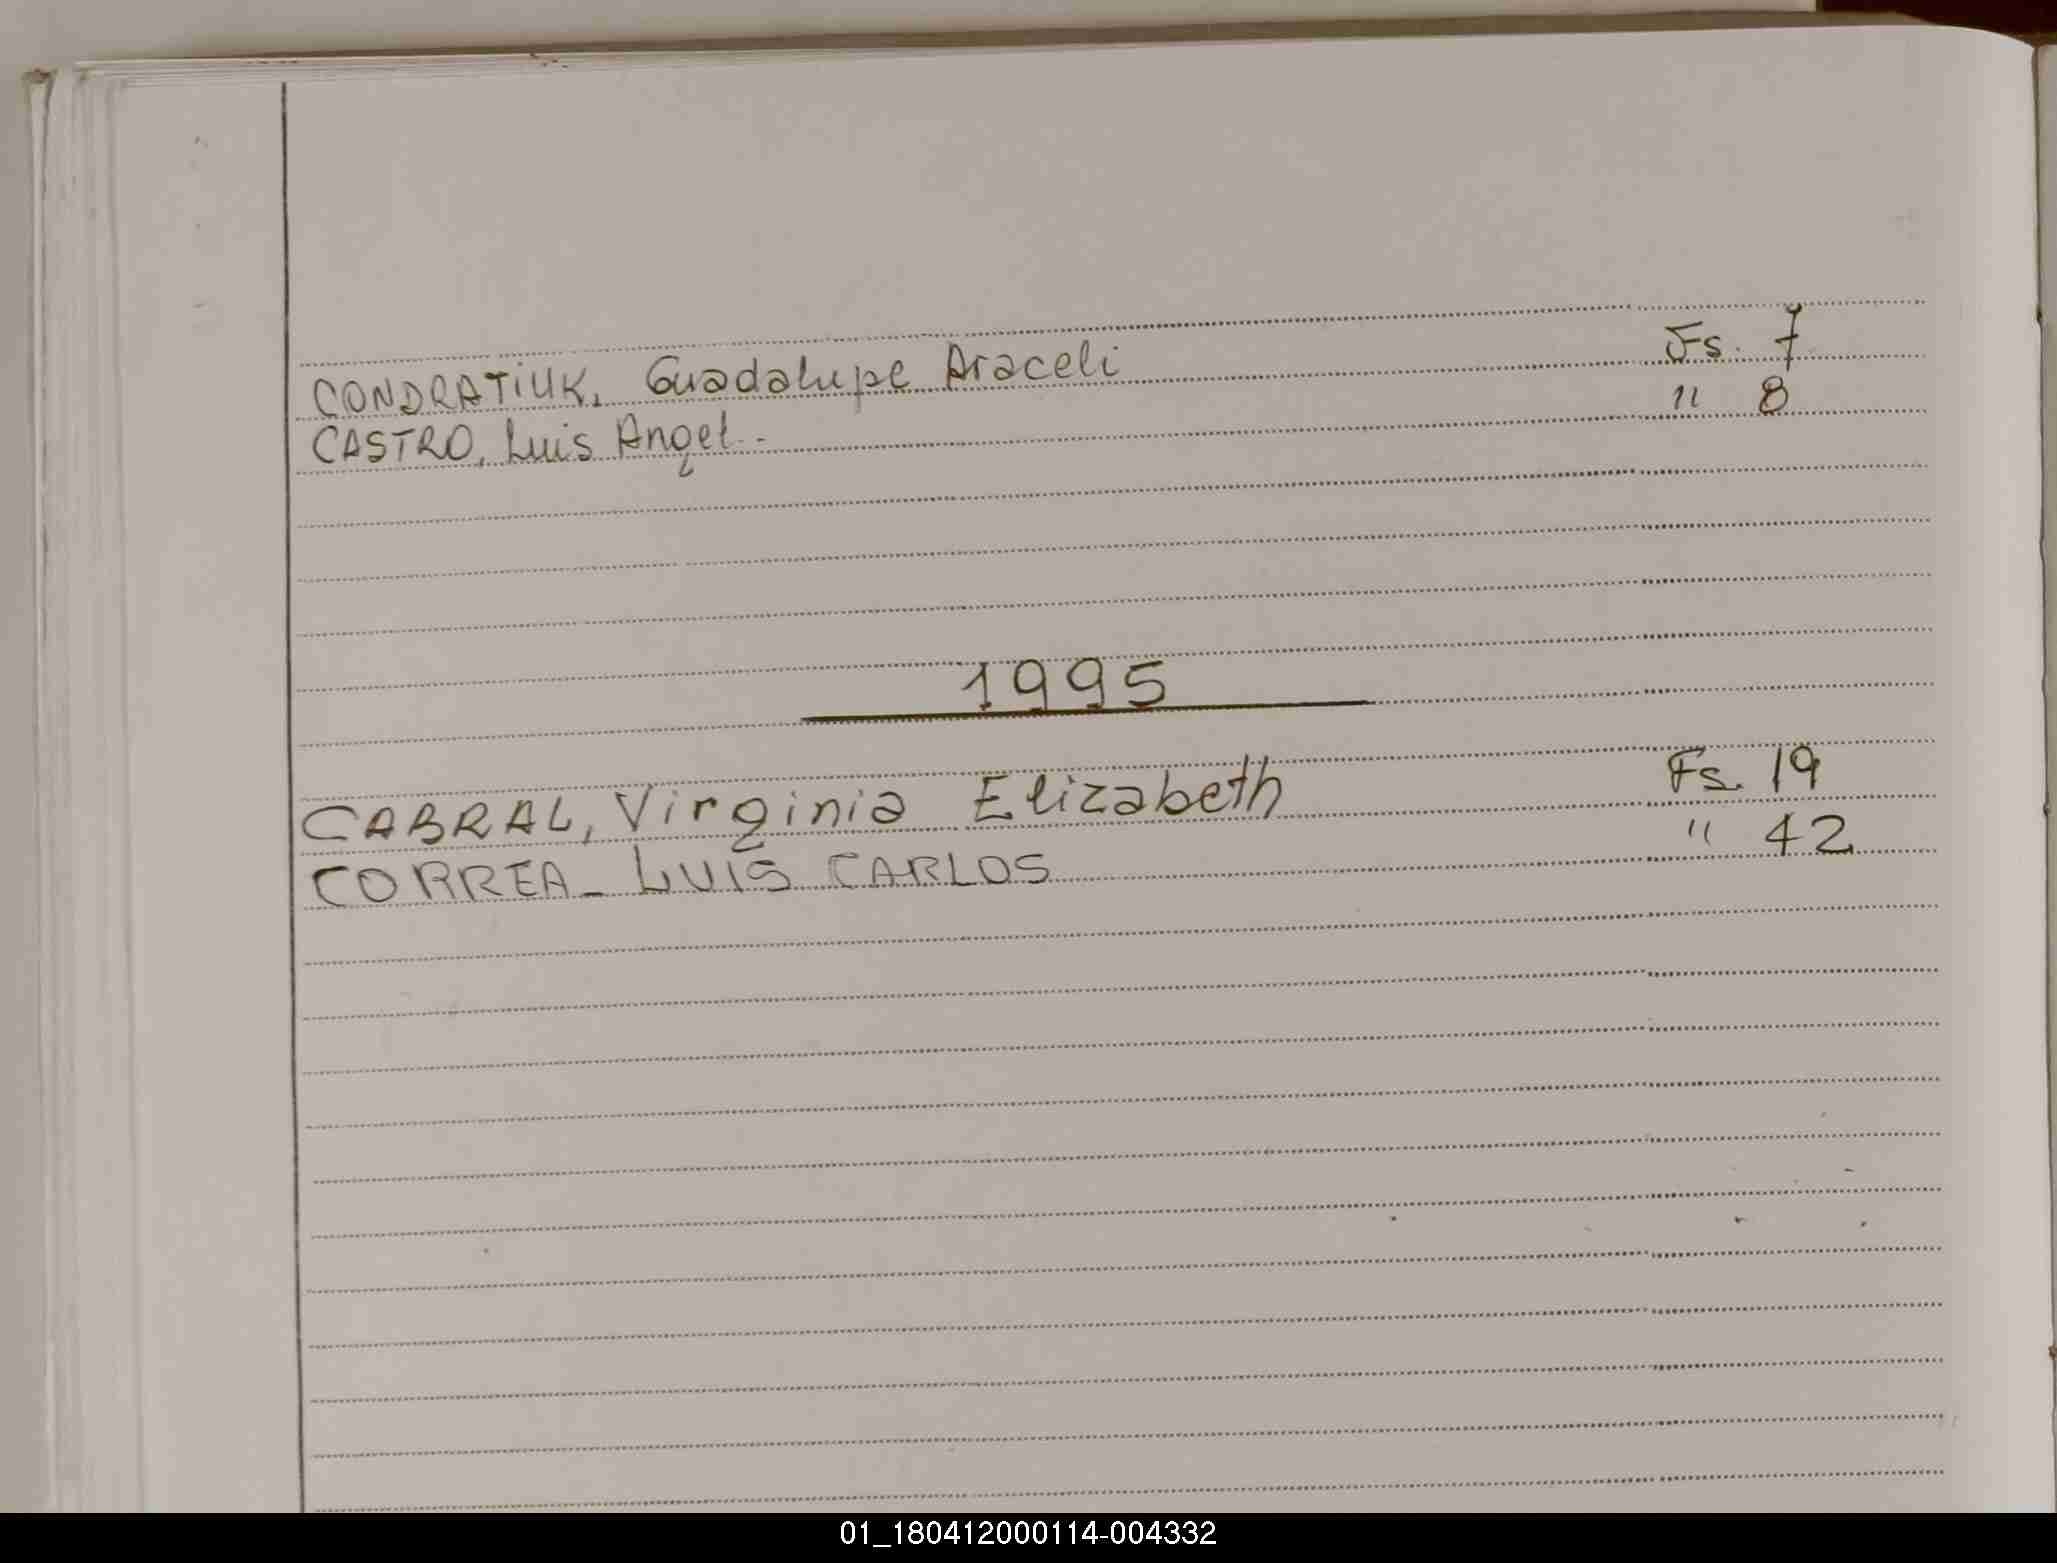 CONDRATIUK, Guadalupe Araceli Fs. 7
CASTRO, Luis Angel.- " 8
1995
CABRAL, Virginia Elizabeth Fs. 19
CORREA_ LUIS CARLOS " 42
01_180412000114-004332